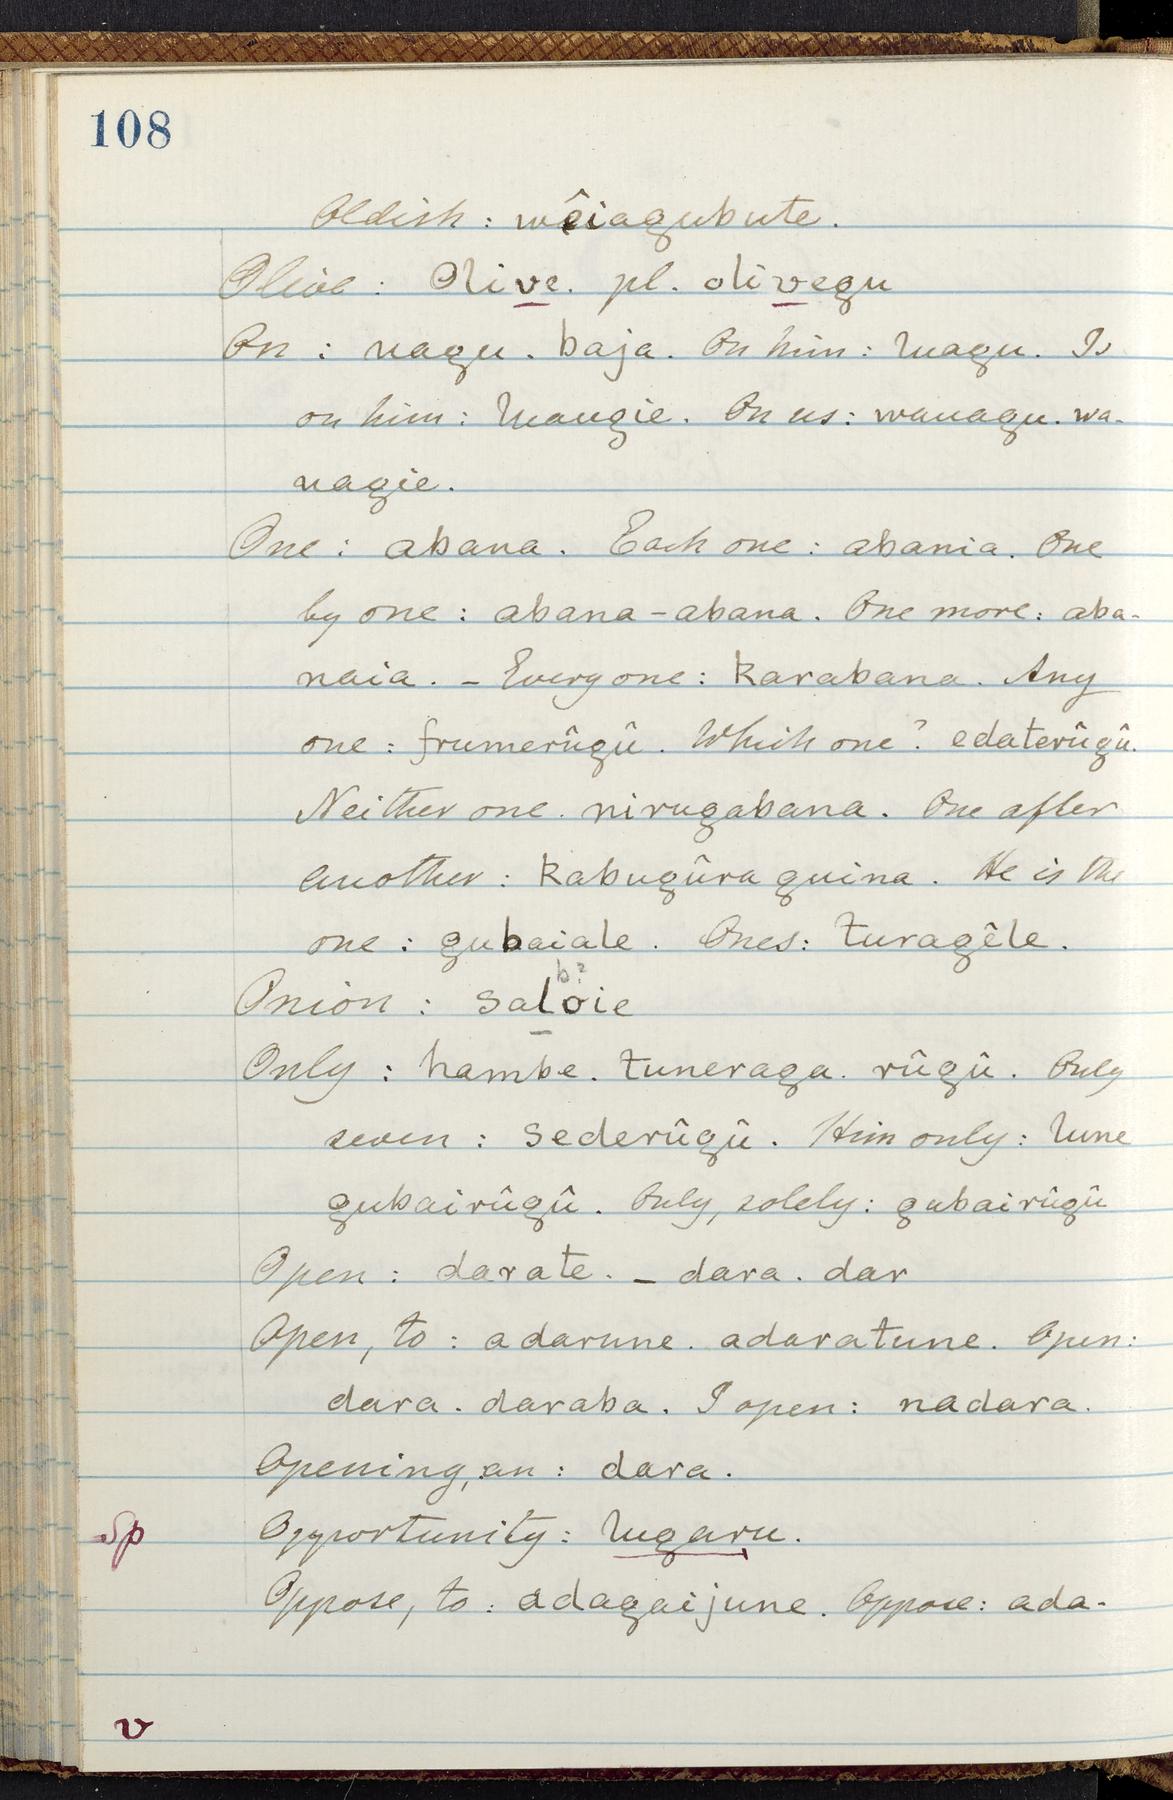 108
Oldish : wêiagubute.
Olive : Olive. pl. olivegu
On : uagu. baja. On him : luagu. Is
on him : luaugie. On us : wauagu. wa-
uagie.
One : abana. Each one : abania. One
by one : abana - abana. One more : aba-
naia. - Everyone : karabana. Any
one : frumerûgû. Which one ? edaterûgû.
Neither one. nirugabana. One after
another : kabugûra guina. He is the
one : gubaiale. Ones : turagêle.
b?
Onion : saloie
Only : hambe. tuneraga. rûgû. Only
seven : sederûgû. Him only : lune
gubairûgû. Only, solely : gubairûgû
Open : darate. - dara. dar
Open, to : adarune. adaratune. Open :
dara. daraba. I open : nadara.
Opening, an : dara.
Sp Opportunity : lugaru.
Oppose, to : adagaijune. Oppose : ada-
v